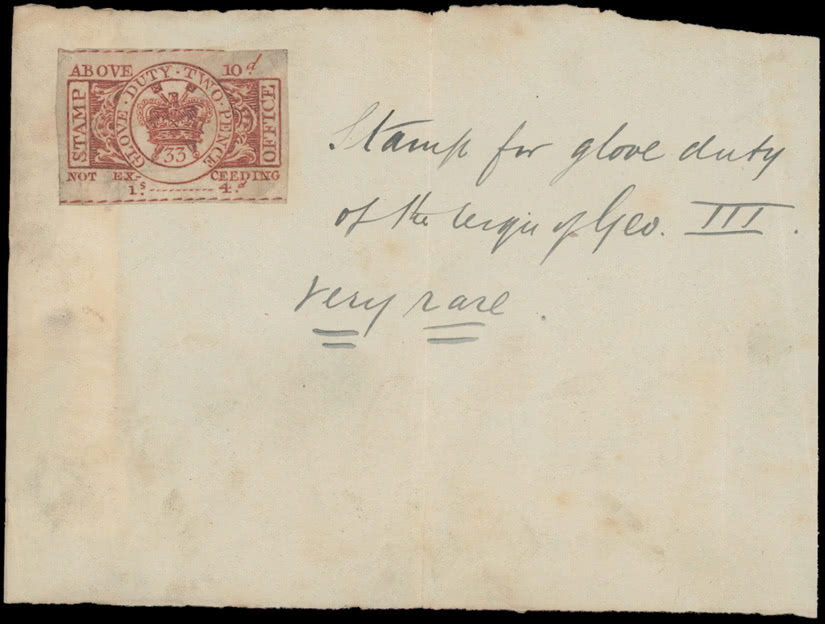 ABOVE 10d
STAMP
GLOVE · DUTY · TWO · PENCE
33
OFFICE
NOT EX- CEEDING
1s. 4.d
Stamp for glove duty
of the reign of Geo. III.
very rare.